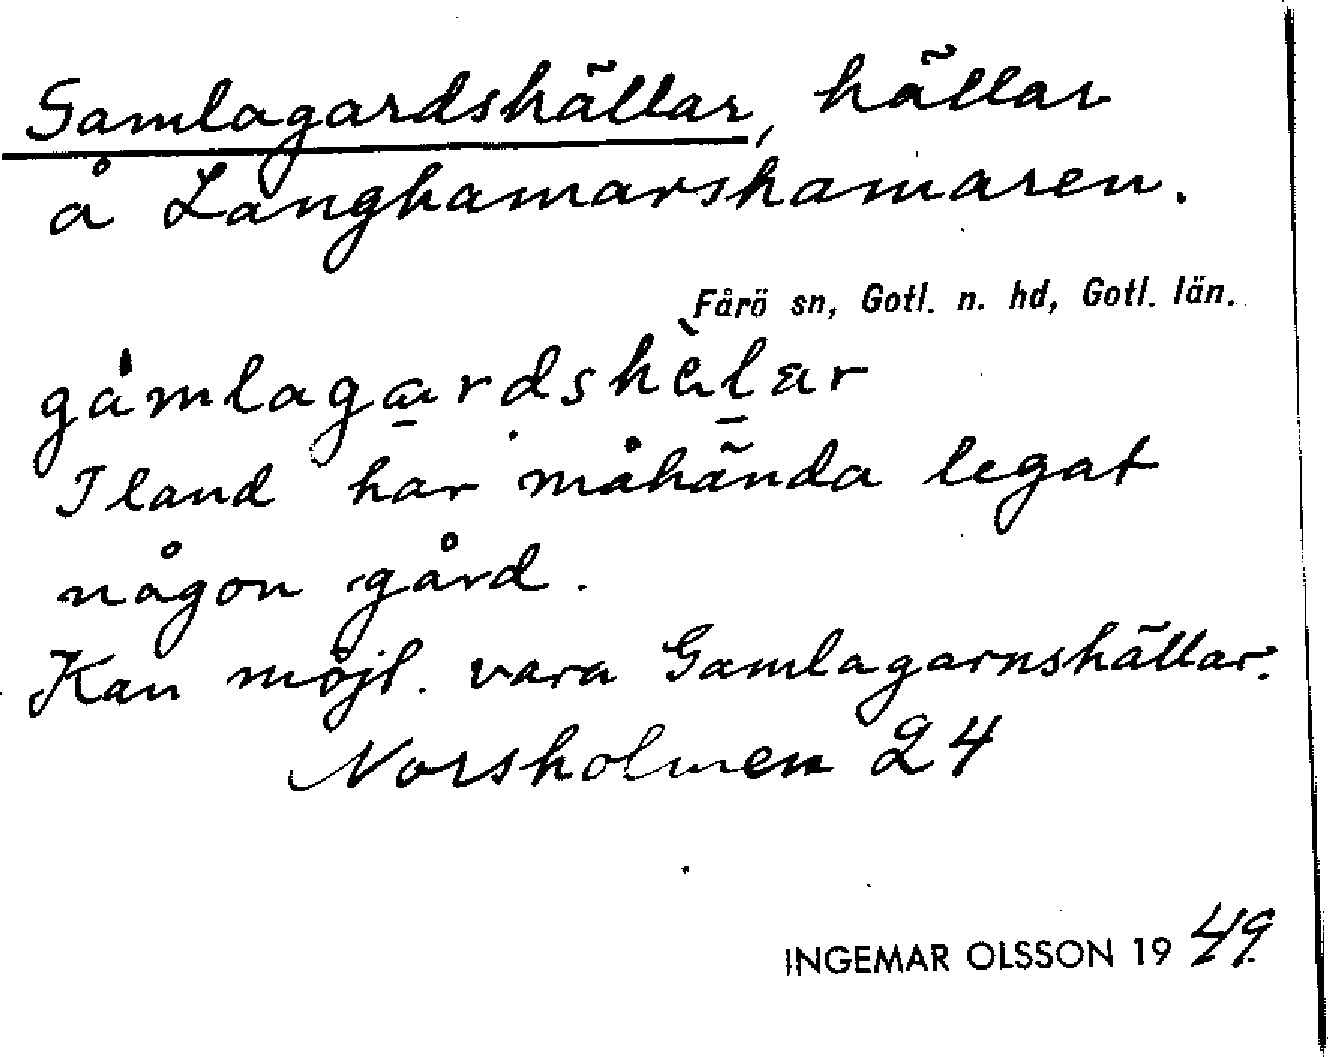 Gamlagardshällar, hällar
å Langhamarshamaren.
Fårö sn, Gotl. n. hd, Gotl. län.
gàmlagardshèlar
I land har måhända legat
någon gård.
Kan möjl. vara Gamlagarnshällar.
Norsholmen 24
INGEMAR OLSSON 1949